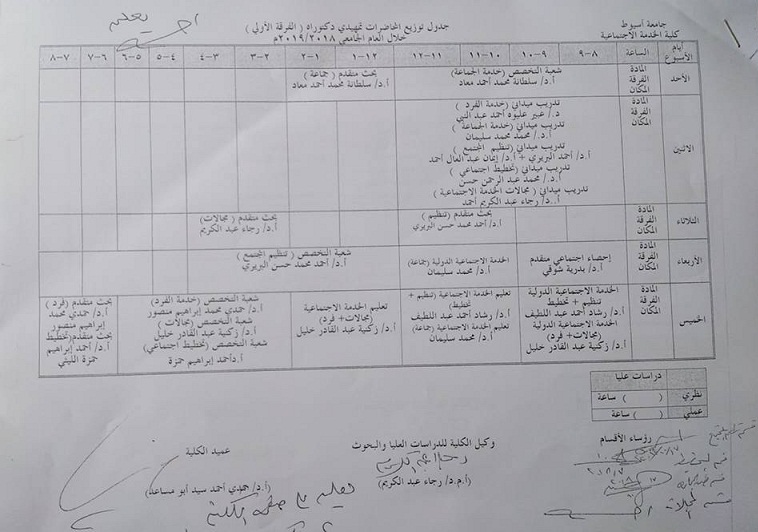 جامعة أسيوط
كلية الخدمة الاجتماعية
جدول توزيع المحاضرات تمهيدي دكتوراه ( الفرقة الأولي )
خلال العام الجامعي ٢٠١٩/٢٠١٨م
أيام الأسبوع
الساعة
٩-٨
١٠-٩
١١-١٠
١٢-١١
١-١٢
٢-١
٣-٢
٤-٣
٥-٤
٦-٥
٧-٦
٨-٧
الأحد
المادة
الفرقة
المكان
شعبة التخصص (خدمة الجماعة)
أ.د/ سلطانة محمد أحمد معاد
بحث متقدم ( جماعة )
أ.د/ سلطانة محمد أحمد معاد
الاثنين
المادة
الفرقة
المكان
تدريب ميداني (خدمة الفرد )
د./ عبير عليوه أحمد عبد النبي
تدريب ميداني (خدمة الجماعة )
أ.د./ محمد محمد سليمان
تدريب ميداني (تنظيم المجتمع )
أ.د/ أحمد البربري + أ.د/ إيمان عبد العال أحمد
تدريب ميداني (تخطيط اجتماعي )
أ.د./ محمد عبد الرحمن حسن
تدريب ميداني ( مجالات الخدمة الاجتماعية )
أ..د/ رجاء عبد الكريم أحمد
الثلاثاء
المادة
الفرقة
المكان
بحث متقدم (تنظيم )
أ.د/ أحمد محمد حسن البربري
بحث متقدم ( مجالات)
أ.د/ رجاء عبد الكريم
الأربعاء
المادة
الفرقة
المكان
إحصاء اجتماعي متقدم
أ.د/ بدرية شوقي
الخدمة الاجتماعية الدولية (جماعة)
أ.د/ محمد سليمان
شعبة التخصص ( تنظيم المجتمع )
أ.د/ أحمد محمد حسن البربري
الخميس
المادة
الفرقة
المكان
الخدمة الاجتماعية الدولية
تنظيم + تخطيط
أ.د/ رشاد أحمد عبد اللطيف
الخدمة الاجتماعية الدولية
(مجالات+ فرد)
أ.د/ زكنية عبد القادر خليل
تعليم الخدمة الاجتماعية (تنظيم +
تخطيط)
أ.د/ رشاد أحمد عبد اللطيف
تعليم الخدمة الاجتماعية (جماعة)
أ.د/ محمد سليمان
تعليم الخدمة الاجتماعية
(مجالات+ فرد)
أ.د/ زكنية عبد القادر خليل
شعبة التخصص (خدمة الفرد)
أ.د/ حمدي محمد إبراهيم منصور
شعبة التخصص ( مجالات)
أ.د/ زكنية عبد القادر خليل
شعبة التخصص (تخطيط اجتماعي)
أ.د/أحمد إبراهيم حمزة
بحث متقدم (فرد )
أ.د/ حمدي محمد
إبراهيم منصور
بحث متقدم(تخطيط
أ.د/ أحمد إبراهيم
حمزة الليثي
دراسات عليا
نظري ( ) ساعة
عملي ( ) ساعة
رؤساء الأقسام
وكيل الكلية للدراسات العليا والبحوث
عميد الكلية
(أ.م.د/ رجاء عبد الكريم)
(أ.د/ حمدي أحمد سيد أبو مساعد)